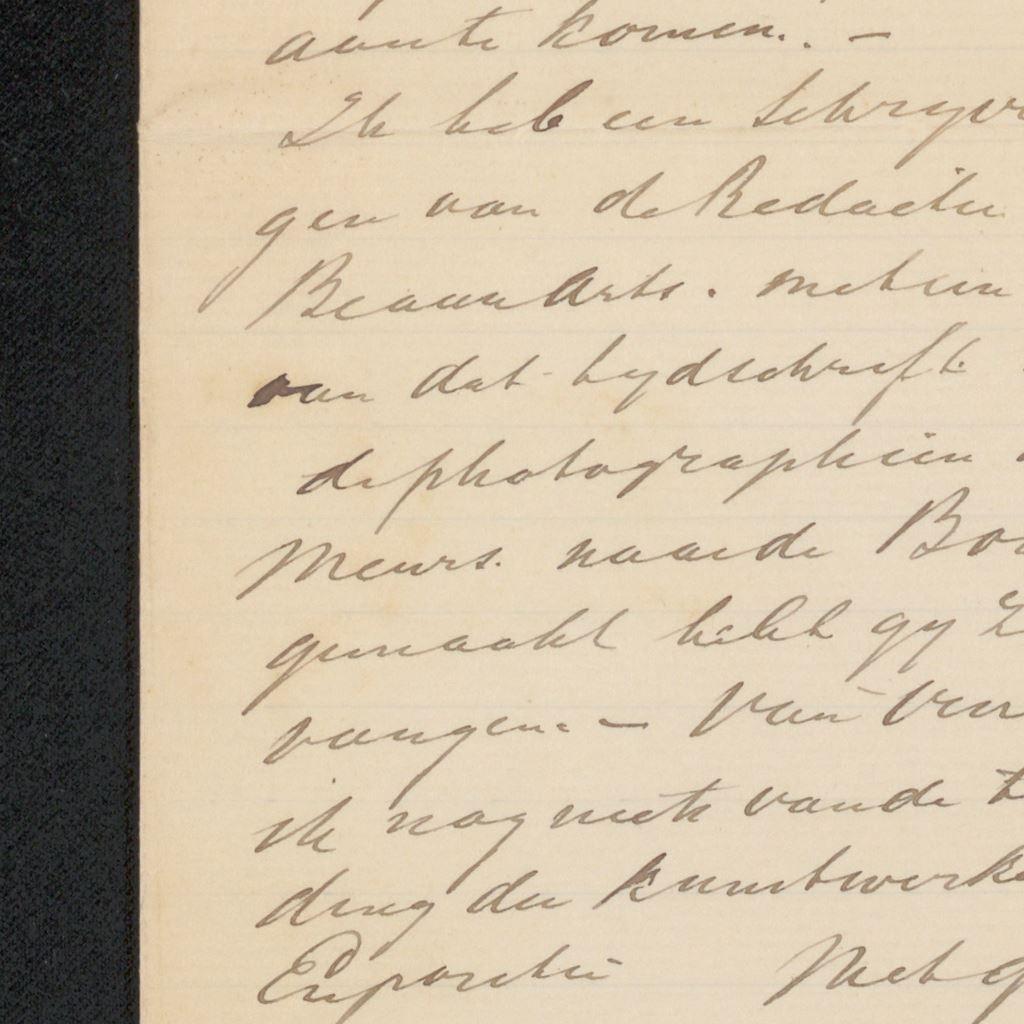 aan te komen. –
Ik heb een schryv
gen van de Redactie
Beaux Arts. met een
van dat tydschrift.
de photographiën
Meurs. naar de Bo
gemaakt hebt gy
vangen. – Van Ven
ik nog niets van de
ding der kunstwerke
Expositie Met g